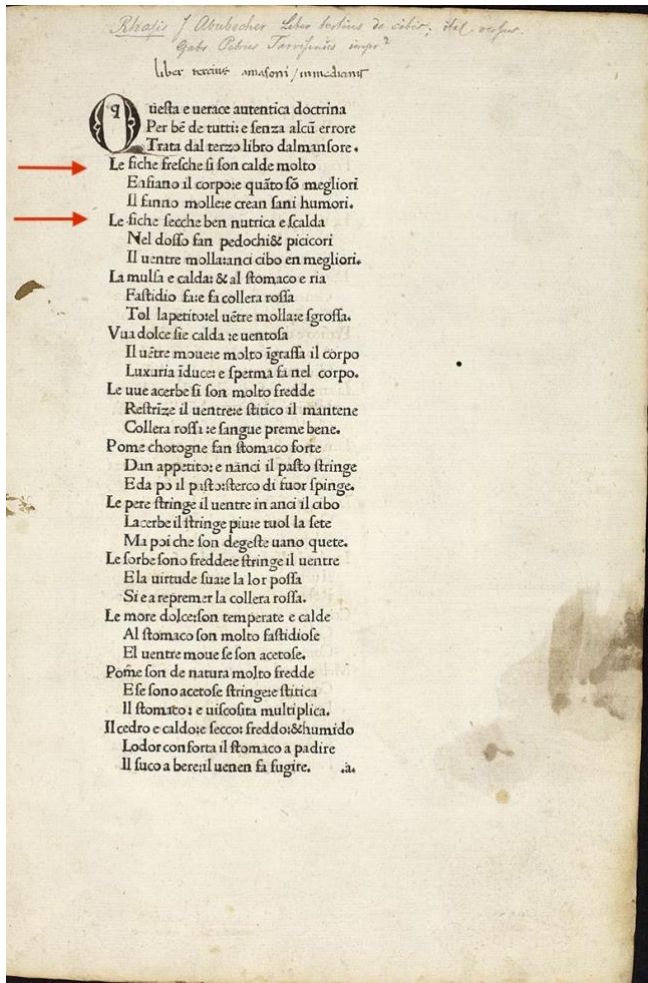 Rhasis f Abubecher Liber tertius de cibis; ital. versus.
Gabr Petrus Tarvisinus impr.
liber tercius amasoni / inmedicinis
Qq uesta e uerace autentica doctrina
Per bẽ de tutti: e senza alcũ errore
Trata dal terzo libro dalmansore.
Le fiche fresche si son calde molto
Enfiano il corpo:e quãto sõ megliori
Il fanno molle:e crean sani humori.
Le fiche secche ben nutrica e scalda
Nel dosso fan pedochi& picicori
Il uentre molla:anci cibo en megliori.
La mulsa e calda: & al stomaco e ria
Fastidio fa:e fa collera rossa
Tol lapetito:el uẽtre molla:e sgrossa.
Vua dolce sie calda :e uentosa
Il uẽtre moue:e molto ĩgrassa il corpo
Luxuria ĩduce: e sperma fa nel corpo.
Le uue acerbe si son molto fredde
Restrĩze il uentre:e stitico il mantene
Collera rossa :e sangue preme bene.
Pome chotogne fan stomaco forte
Dan appetito: e nãnci il pasto stringe
E da po il pasto:sterco di fuor spinge.
Le pere stringe il uentre in anci il cibo
Lacerbe il stringe piu:e tuol la sete
Ma poi che son degeste uano quete.
Le sorbe sono fredde:e stringe il uentre
E la uirtude sua:e la lor possa
Si e a repremer la collera rossa.
Le more dolce:son temperate e calde
Al stomaco son molto fastidiose
El uentre moue se son acetose.
Pom̃e son de natura molto fredde
E se sono acetose stringe:e stitica
Il stomaco: e uiscosita multiplica.
Il cedro e caldo:e secco: freddo:&humido
Lodor conforta il stomaco a padire
Il suco a bere:il uenen fa fugire. .a.